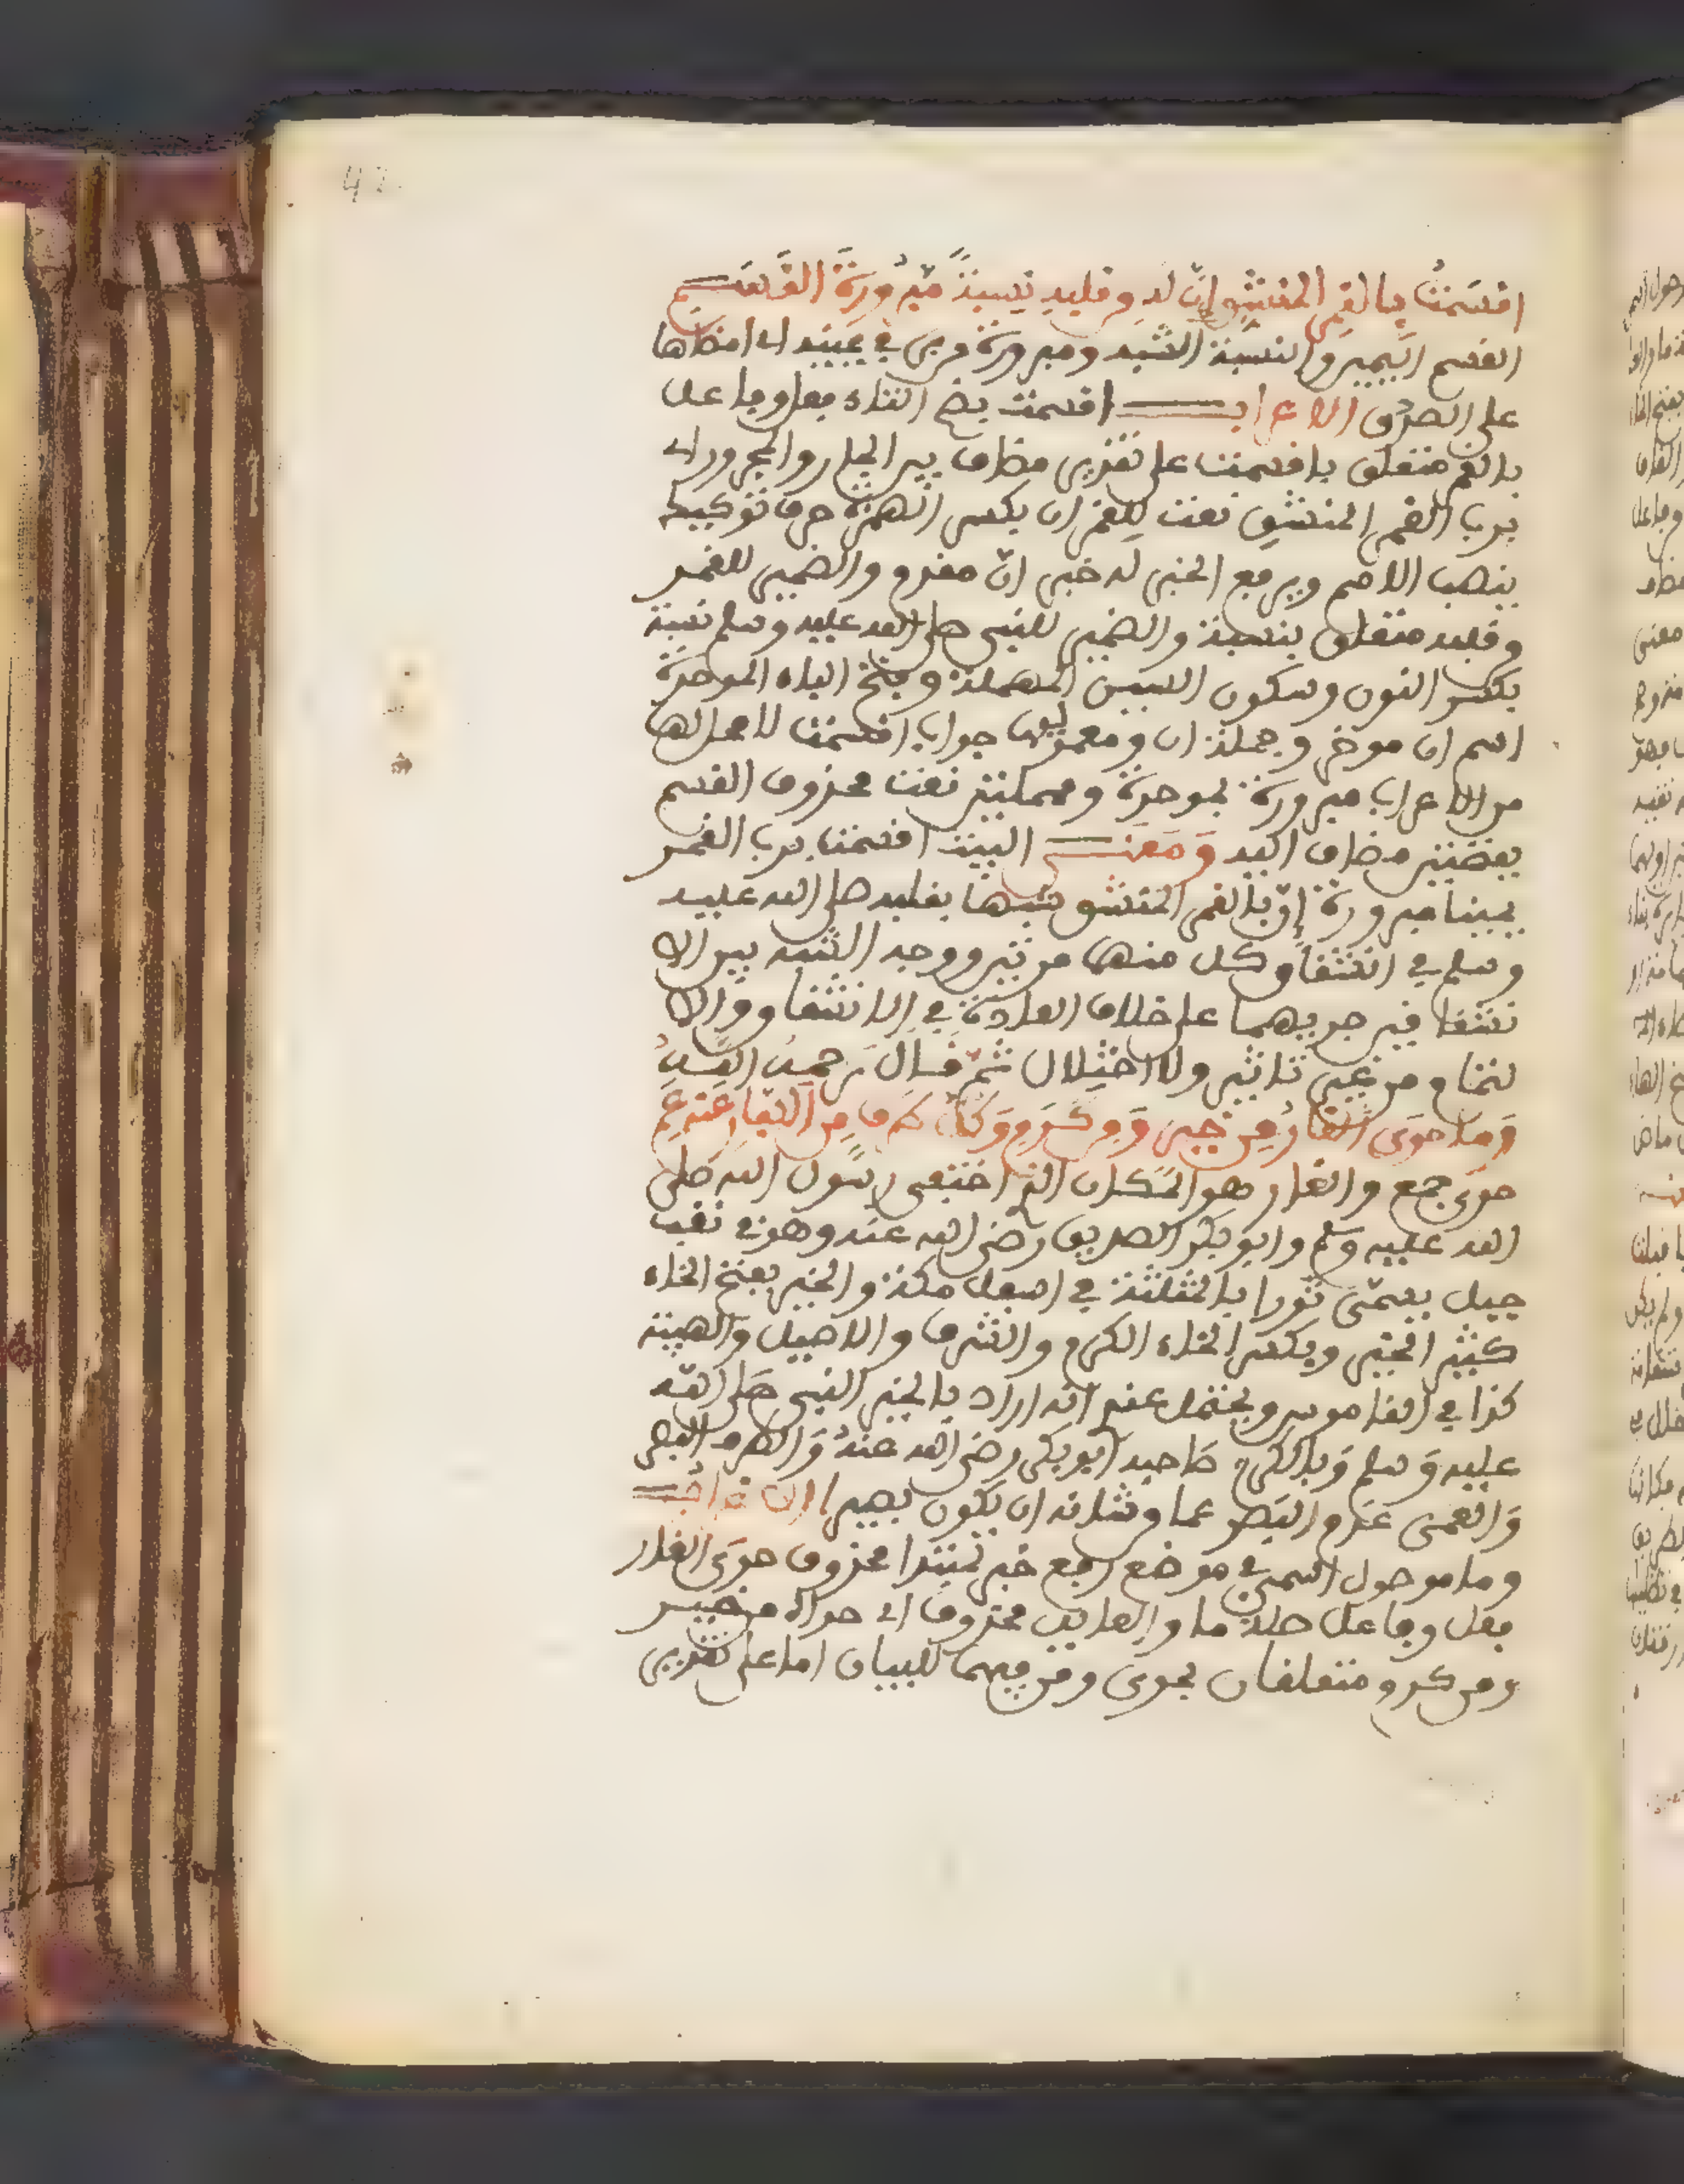 42
اقسمتُ بالقمر المنشق ان له من قلبه نسبة مبرورة القسم
القسم اليمين والنسبة الشبه ومبرورة من بر في يمينه اي امضاها
على الصدق الاعراب اقسمت بضم التاء فعل وفاعل
بالقمر متعلق باقسمت على تقدير مضاف بين الجار والمجرور اي
برب القمر المنشق نعت للقمر ان بكسر الهمزة حرف توكيد
ينصب الاسم ويرفع الخبر له خبر ان مقدم والضمير للقمر
وقلبه متعلق بنسبة والضمير للنبي صلى الله عليه وسلم نسبة
بكسر النون وسكون السين المهملة وفتح الباء الموحدة
اسم ان موخر وجملة ان ومعموليها جواب اقسمت لا محل لها
من الاعراب مبرورة بموحدة ومهملتين نعت محذوف القسم
بفتحتين مضاف اليه ومعنى البيت اقسمت برب القمر
يمينا مبرورة ان بالقمر المنشق شبها بقلبه صلى الله عليه
وسلم في انشقاق كل منهما مرتين ووجه الشبه بين الا
نشقاقين جريهما على خلاف العادة في الانشقاق والا
لتئام من غير تاثير ولا اختلال ثم قال رحمه الله
وما حوى الغار من خير ومن كرم وكل طرف من الكفار عنه عم
حوى جمع والغار هو المكان الذي اختفى رسول الله صلى
الله عليه وسلم وابو بكر الصديق رضي الله عنه وهو في نقب
جبل يسمى ثورا بالمثلثة في اسفل مكة والخير بفتح الخاء
كثير الخير وبكسر الخاء الكرم والشرف والاصيل والهيئة
كذا في القاموس ويحتمل عندي انه اراد بالخير النبي صلى الله
عليه وسلم وبالكرم صاحبه ابو بكر رضي الله عنه والطرف البصر
والعمى عدم البصر عما من شانه ان يكون بصيرا الاعراب
وما موصول اسمي في موضع رفع خبر لمبتدا محذوف حوى الغار
فعل وفاعل صلة ما والعايد محذوف اي حواه من خير
ومن كرم متعلقان بحوى ومن فيهما للبيان اما على تقدير